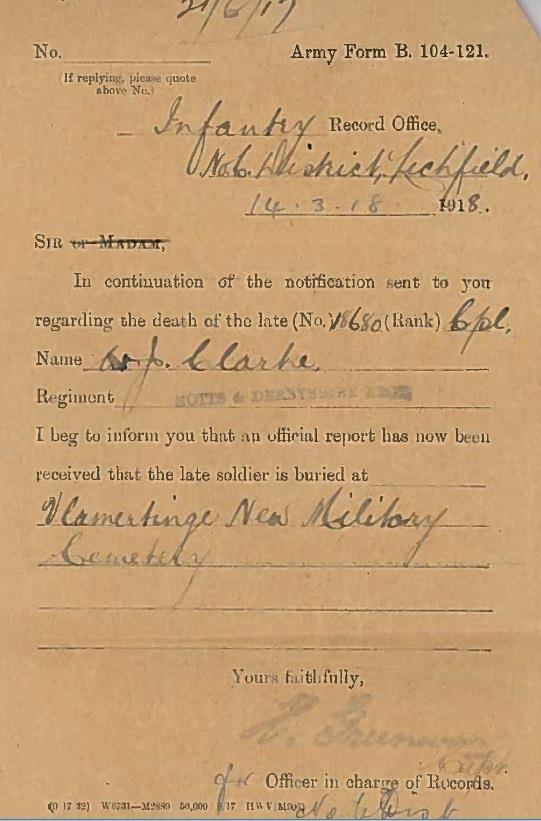 21/6/17
No.
Army Form B. 104-121.
(If replying, please quote
above No.)
Infantry Record Office,
No 6. District, Lichfield,
14.3.18 1918.
SIR or MADAM,
In continuation of the notification sent to you
regarding the death of the late (No.) 18680 (Rank) Cpl.
Name J. Clarke.
Regiment NOTTS & DERBYSHIRE REGT
I beg to inform you that an official report has now been
received that the late soldier is buried at
Vlamertinge New Military
Cemetery
Yours faithfully,
for Officer in charge of Records.
(9 17 32) W6731—M2889 50,000 17 H W V(M)
No 6 Dist